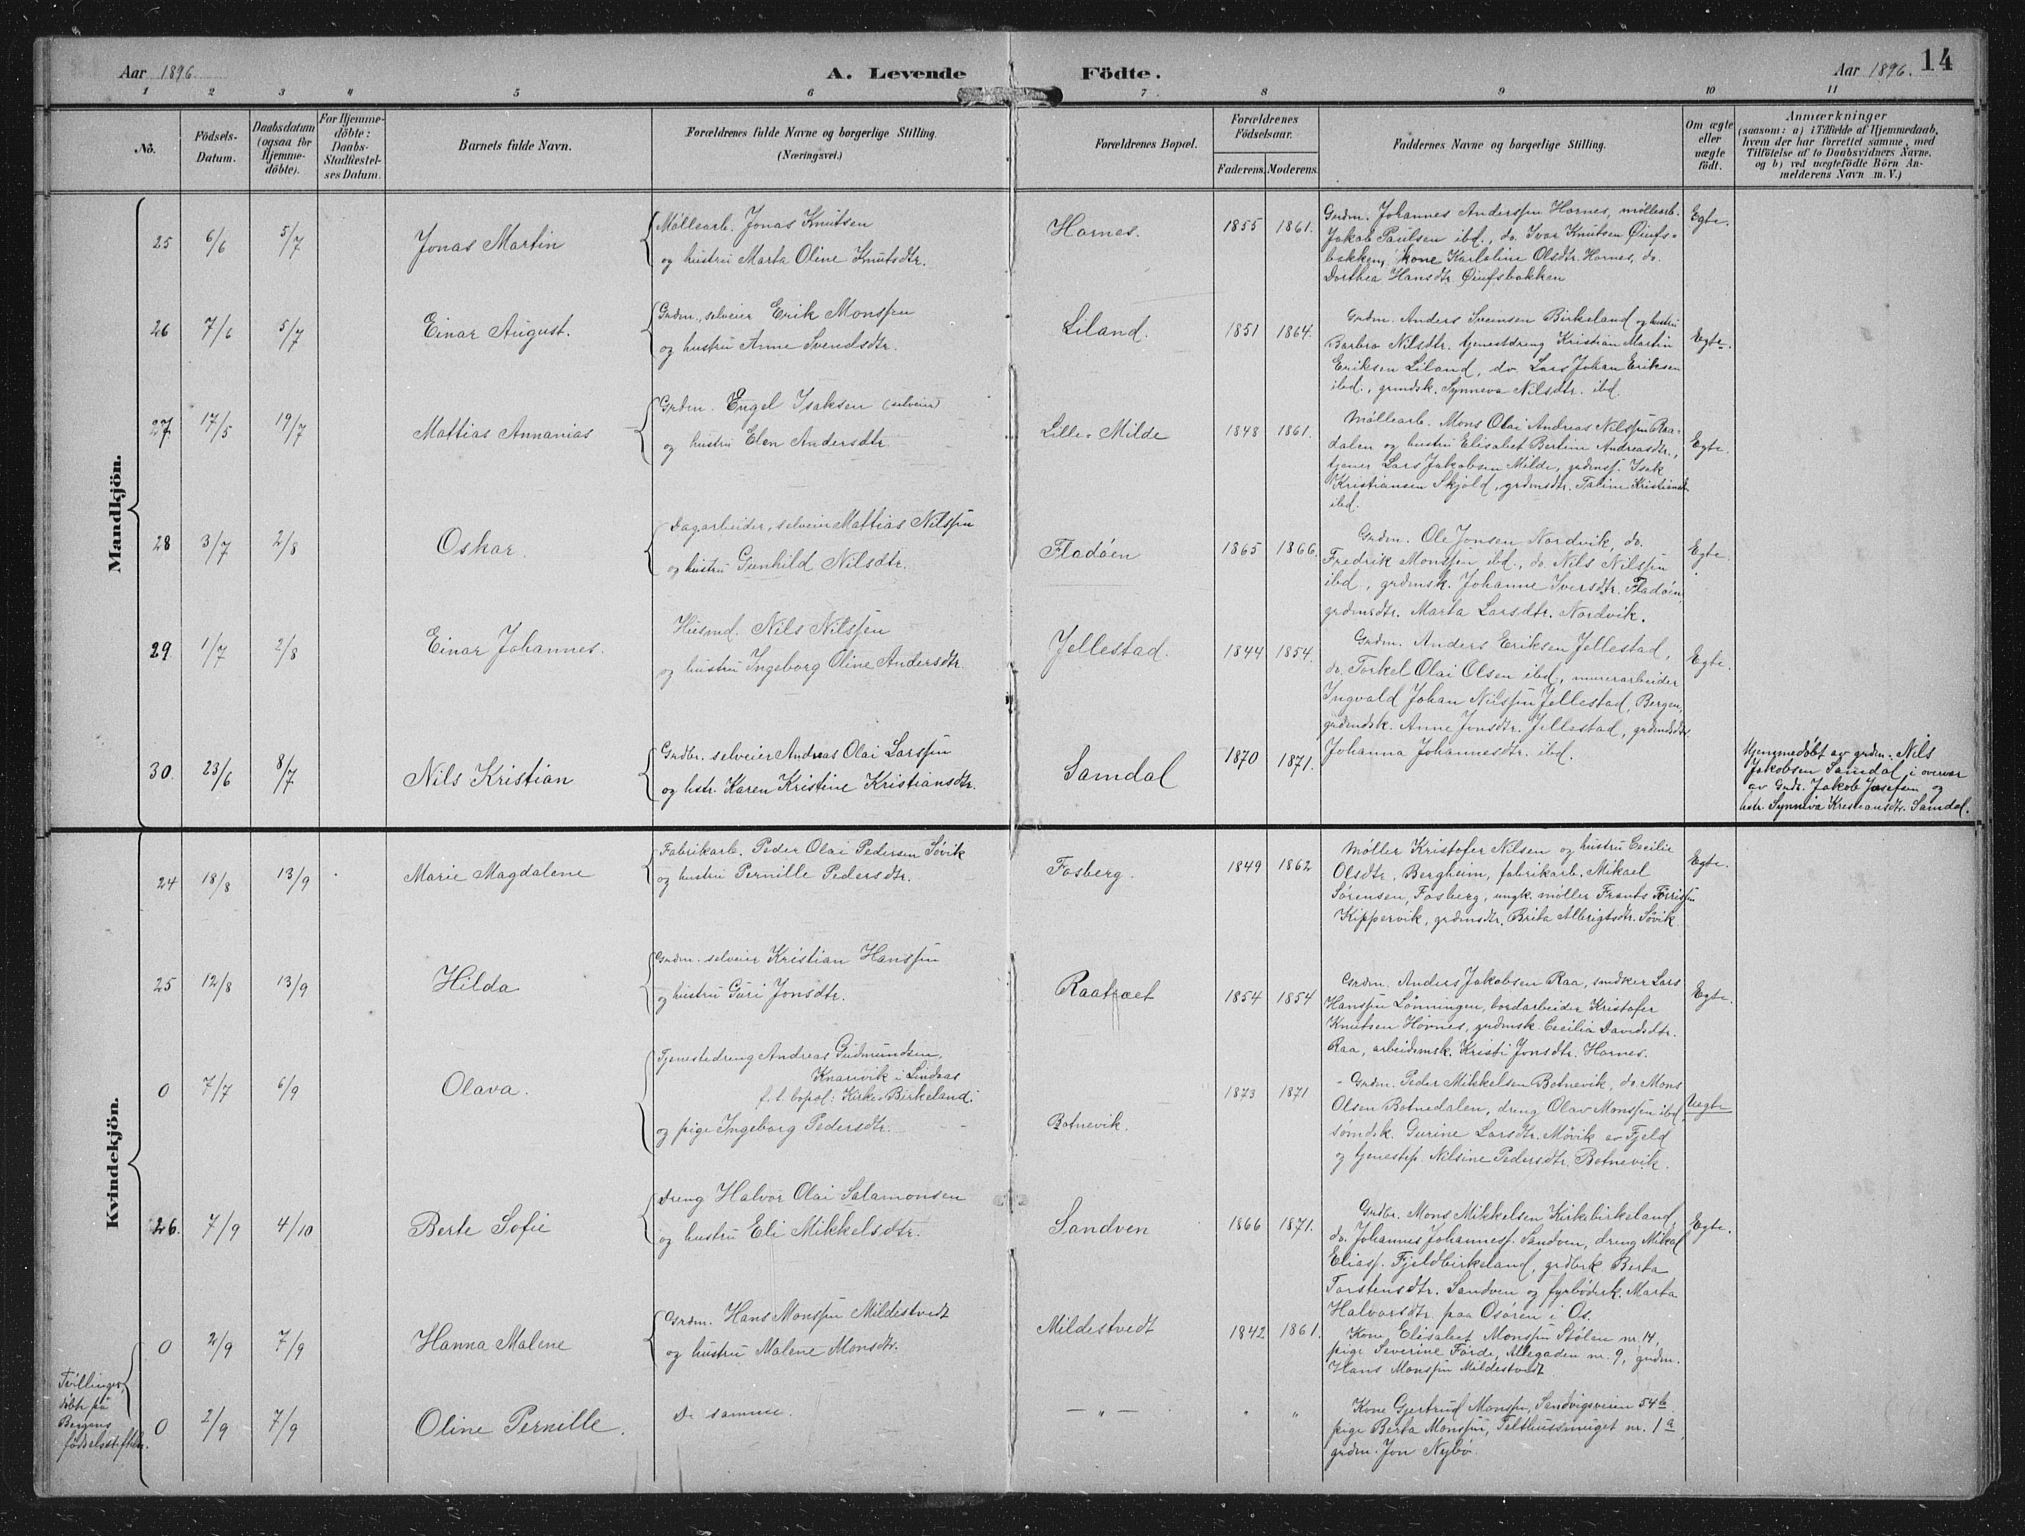 Aar 1896.
A. Levende Födte.
Aar 1896. 14
1 2 3 4 5 6 7 8 9 10 11
No.
Födsels-
Datum.
Daabsdatum
(ogsaa for
Hjemme-
döbte).
For Hjemme-
döbte:
Daabs-
Stadfæstel-
ses Datum.
Barnets fulde Navn.
Forældrenes fulde Navne og borgerlige Stilling.
(Næringsvei.)
Forældrenes Bopæl.
Forældrenes
Födselsaar.
Faderens. Moderens.
Faddernes Navne og borgerlige Stilling.
Om ægte
eller
uægte
födt.
Anmærkninger
(saasom: a) i Tilfælde af Hjemmedaab,
hvem der har forrettet samme, med
Tilföielse af to Daabsvidners Navne,
og b) ved uægtefödte Börn An-
melderens Navn m. V.)
Mandkjön.
25 6/6 5/7 Jonas Martin
Møllearb. Jonas Knutsen
og hustru Marta Oline Knutsdtr.
Hornes. 1855 1861.
Grdm. Johannes Anderssen Hornes, møllearb.
Jakob Paulsen ibd., do. Ivar Knutsen
bakken, kone Karloline Olsdtr. Hornes, do.
Dorthea Hansdtr.
Egte.
26 7/6 5/7 Einar August.
Grdm., selveier Erik Monssen
og hustru Anne Svendsdtr.
Liland. 1851 1864.
Grdm. Anders Svensen Birkeland og hustru
Barbro Nilsdtr. tjenestdreng Kristian Martin
Eriksen Liland, do Lars Johan Eriksen
ibd., grmdsk. Synneva Nilsdtr. ibd.
Egte.
27 17/5 19/7 Mattias Annanias
Grdm. Engel Isaksen (selveier)
og hustru Elen Andersdtr.
Lille-Milde 1848 1861.
Møllearb. Mons Olai Andreas Nilssen Raa-
dalen og hustru Elisabet Bertine Andreasdtr.,
tjener Lars Jakobsen Milde, grdmss. Isak
Kristiansen Skjold, grdmsdtr. Taline Kristiansd.
ibd.
Egte.
28 3/7 2/8 Oskar.
Dagarbeider, selveier Mattias Nilssen
og hustru Gunhild Nilsdtr.
Fladøen 1865 1866.
Grdm. Ole Jonsen Nordvik, do.
Fredrik Monssen ibd., do. Nils Nilssen
ibd, grdmsk. Johanne Iversdtr. Fladøen,
grdmsdtr. Marta Larsdtr. Nordvik.
Egte.
29. 1/7 2/8 Einar Johannes.
Husmd. Nils Nilssen
og hustru Ingeborg Oline Andersdtr.
Jellestad. 1844 1854.
Grdm. Anders Eriksen Jellestad,
do. Torkel Olai Olsen ibd, murerarbeider
Ingvald Johan Nilssen Jellestad, Bergen,
grdmdsk. Anne Jonsdtr. Jellestad, grdmdsdtr.
Johanna Johannesdtr. ibd.
Egte.
30. 23/6 8/7 Nils Kristian
Grdbr. selveier Andreas Olai Larssen
og hstr. Karen Kristine Kristiansdtr.
Samdal 1870 1871.
Hjemmedøbt av grdm. Nils
Jakobsen Samdal, i overvær
av Grdr. Jakob Josefsen og
hstr. Synneva Kristiansdtr. Samdal.
Kvindekjön.
24 18/8 13/9 Marie Magdalene
Fabrikarb. Peder Olai Pedersen Søvik
og hustru Pernille Pedersdtr.
Fosberg. 1849 1862
Møller Kristofer Nilsen og hustru Cecilie
Olsdtr. Bergheim, fabrikarb. Mikael
Sørensen, Fosberg, ungk. møller Frants
Kippervik, grdmsdtr. Brita Albrigtsdtr. Søvik
Egte.
25 12/8 13/9 Hilda
Grdm. selveier Kristian Hanssen
og hustru Guri Jonsdtr.
Raatræet 1854 1854
Grdm. Anders Jakobsen Raa, snedker Lars
Hanssen Lønningen, bordarbeider Kristofer
Knutsen Hornes, grdmsk. Cecilia Davidsdtr.
Raa, arbeidsmsk. Kristi Jonsdtr. Hornes.
Egte.
0 7/7 6/9 Olava.
Tjenestedreng Andreas Gudmundsen,
Knarrvik i Lindaas
f. t. bopæl: Kirke-Birkeland;
og pige Ingeborg Pedersdtr.
Botnevik. 1873 1871
Grdm. Peder Mikkelsen Botnevik, do. Mons
Olsen Botnedalen, dreng Olav Monssen ibd.
sømdsk. Gurine Larsdtr. Møvik av Fjeld
og tjenestep. Nilsine Pedersdtr. Botnevik.
Uegte
26. 7/9 4/10 Berte Sofie
Dreng Halvor Olai Salamonsen
og hustru Eli Mikkelsdtr.
Sandven 1866 1871.
Grdbr. Mons Mikkelsen Kirkebirkeland,
do. Johannes Johanness. Sandven, dreng Mikal
Eliass. Fjeldbirkeland, grdbrk Berta
Torstensdtr. Sandven og fyrbøderk. Marta
Halvorsdtr. paa Osøren i Os.
Egte.
0 2/9 7/9 Hanna Malene
Grdm. Hans Monssen Mildestvedt
og hustru Malene Monsdtr.
Mildestvedt 1842 1861.
Kone Elisabet Monssen Stølen nr. 14,
pige Severine Førde, Allegaden nr. 9, grdm.
Hans Monssen Mildestvedt
Tvillinger,
døbte på
Bergens
fødselsstiftelse.
0 2/9 7/9 Oline Pernille.
De samme
— „ — „ „
Kone Gjertrud Monsen, Sandvigsveien 54b
pige Berta Monssen, Felthussmuget nr. 1a,
grdm. Jon Nybø.